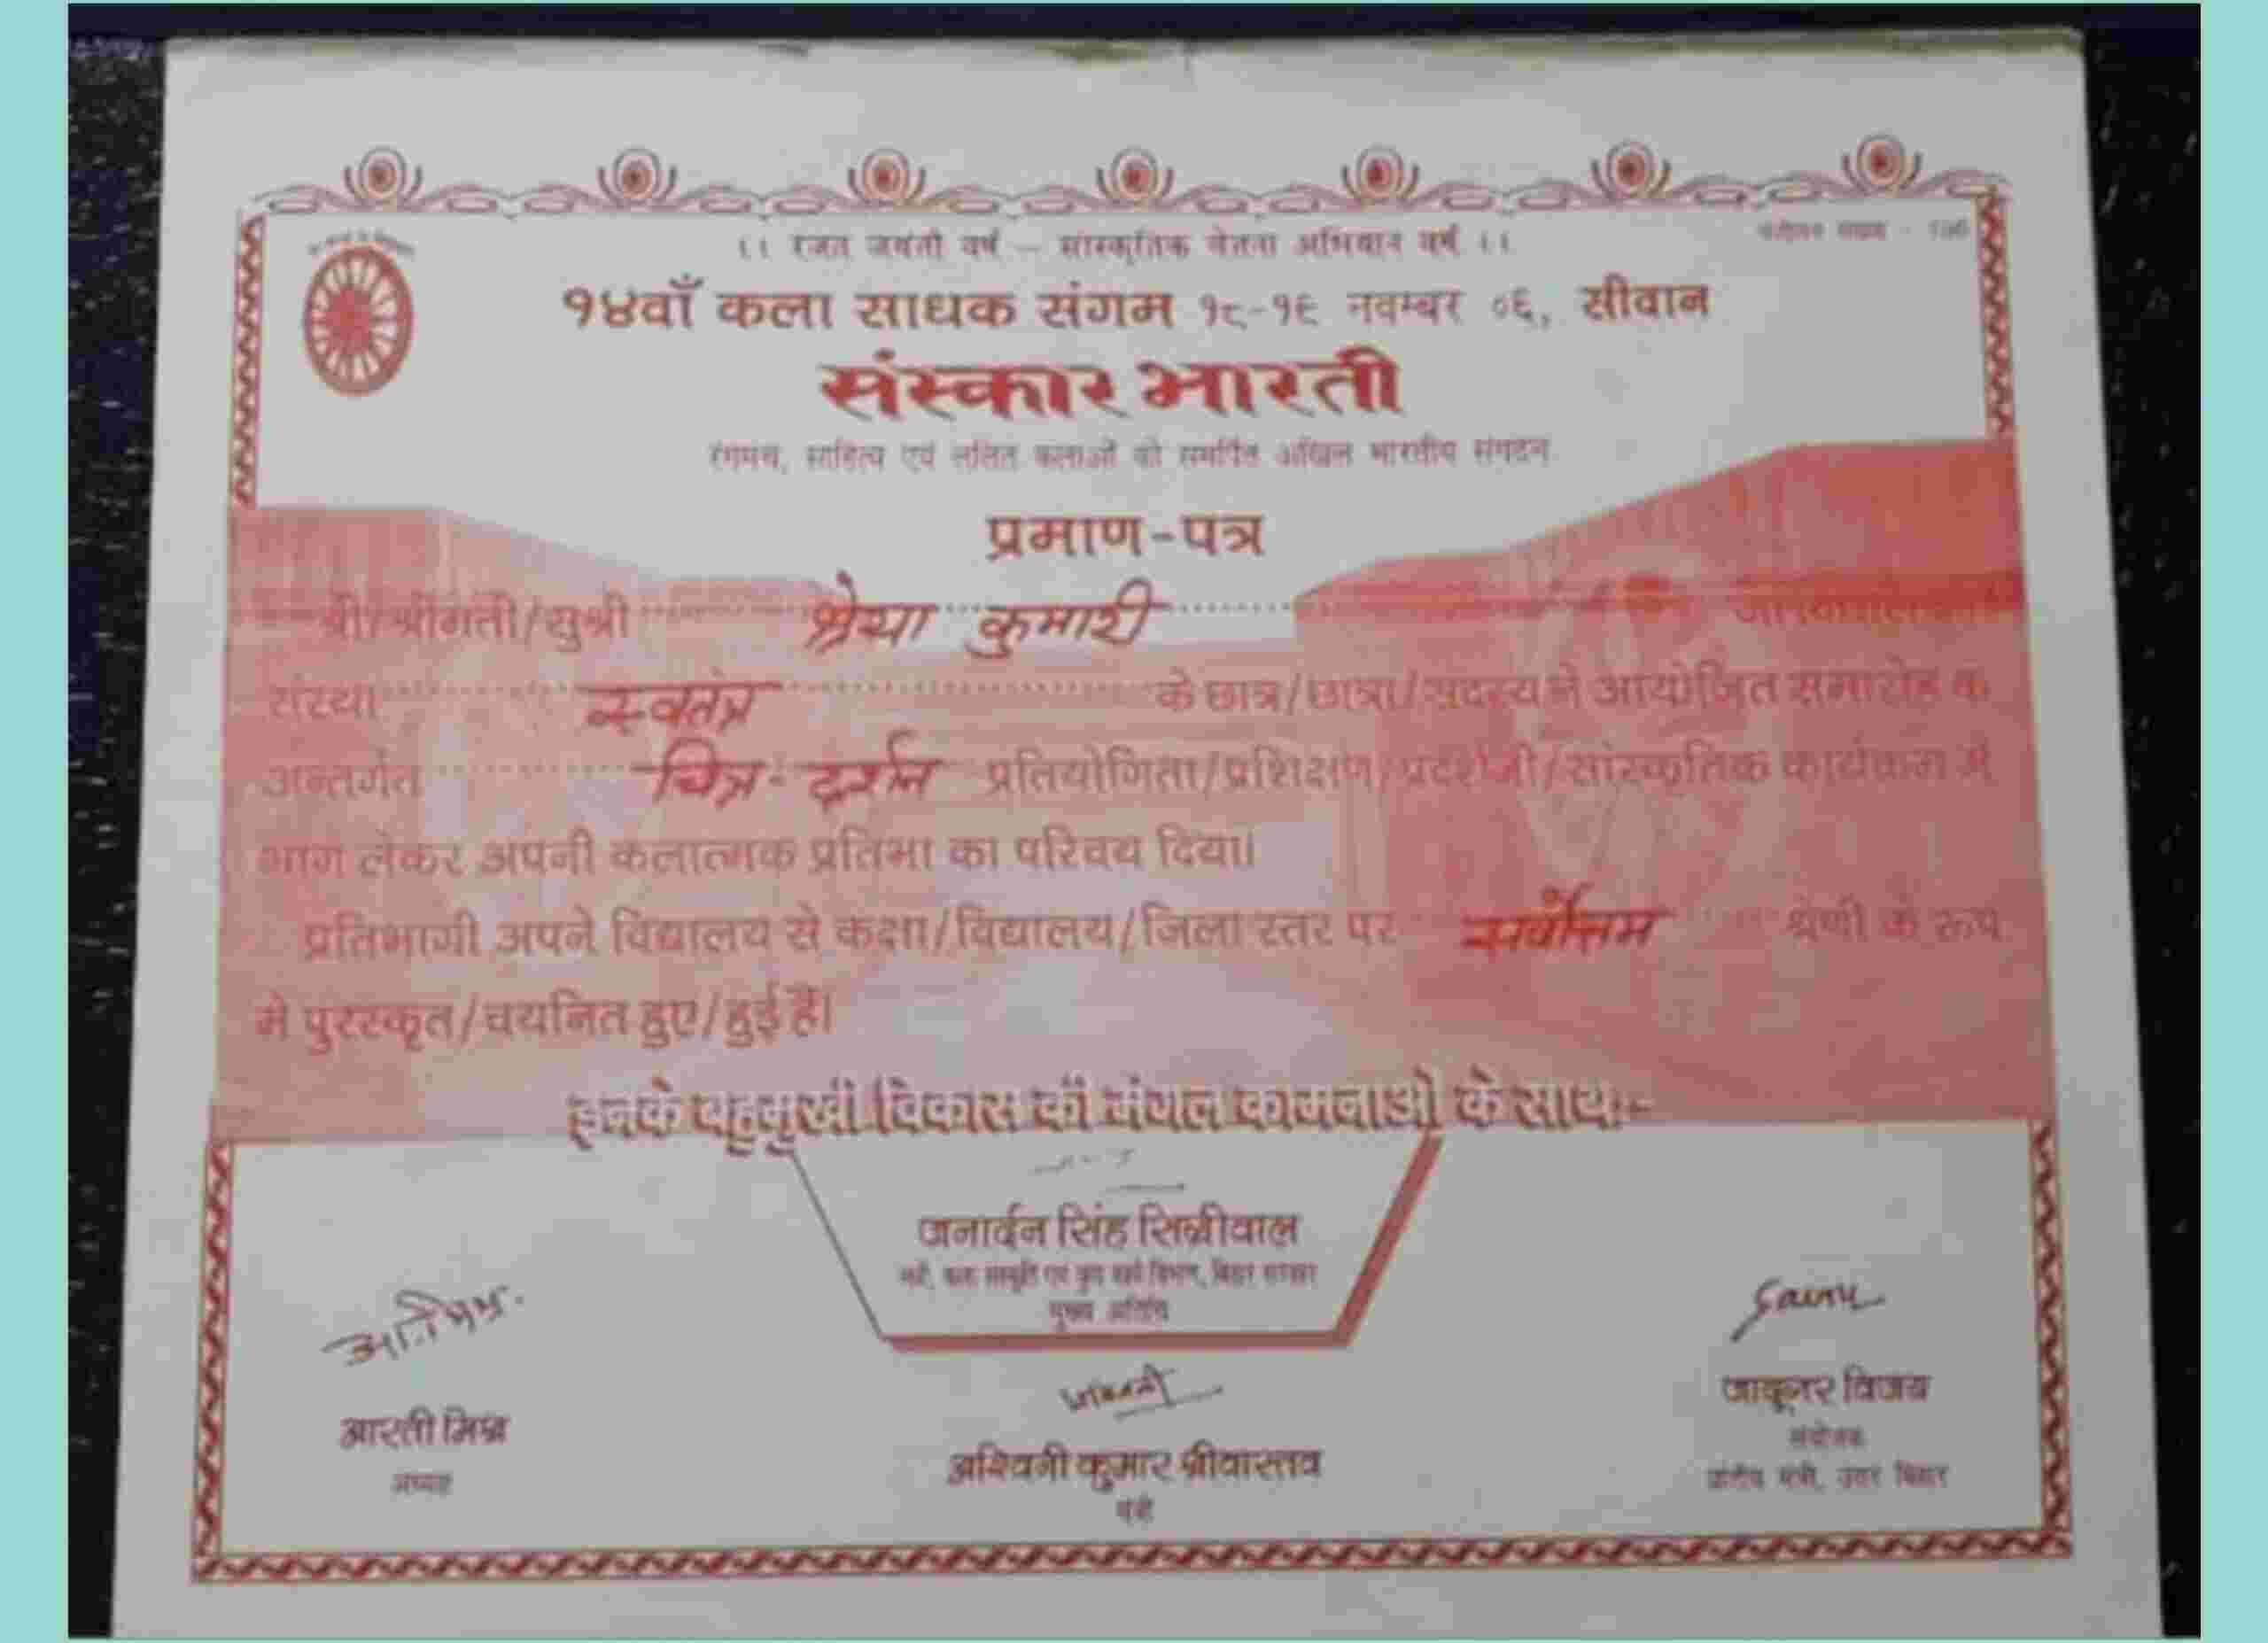 ।। रजत जयंती वर्ष – सांस्कृतिक चेतना अभियान वर्ष ।।
१४वाँ कला साधक संगम १८-१९ नवम्बर ०६, सीवान
संस्कार भारती
रंगमंच, साहित्य एवं ललित कलाओं को समर्पित अखिल भारतीय संगठन
प्रमाण-पत्र
श्री/श्रीमती/सुश्री श्रेया कुमारी
संस्था स्वतंत्र के छात्र/छात्रा/सदस्य ने आयोजित समारोह के
अन्तर्गत चित्र-दर्शन प्रतियोगिता/प्रशिक्षण/प्रदर्शनी/सांस्कृतिक कार्यक्रम में
भाग लेकर अपनी कलात्मक प्रतिभा का परिचय दिया।
प्रतिभागी अपने विद्यालय से कक्षा/विद्यालय/जिला स्तर पर सर्वोत्तम श्रेणी के रूप
में पुरस्कृत/चयनित हुए/हुई हैं।
इनके बहुमुखी विकास की मंगल कामनाओं के साथ:-
जनार्दन सिंह सिग्रीवाल
मुख्य अतिथि
आरती मिश्र
अध्यक्ष
अश्विनी कुमार श्रीवास्तव
मंत्री
विजय
संयोजक
प्रांतीय मंत्री, उत्तर बिहार